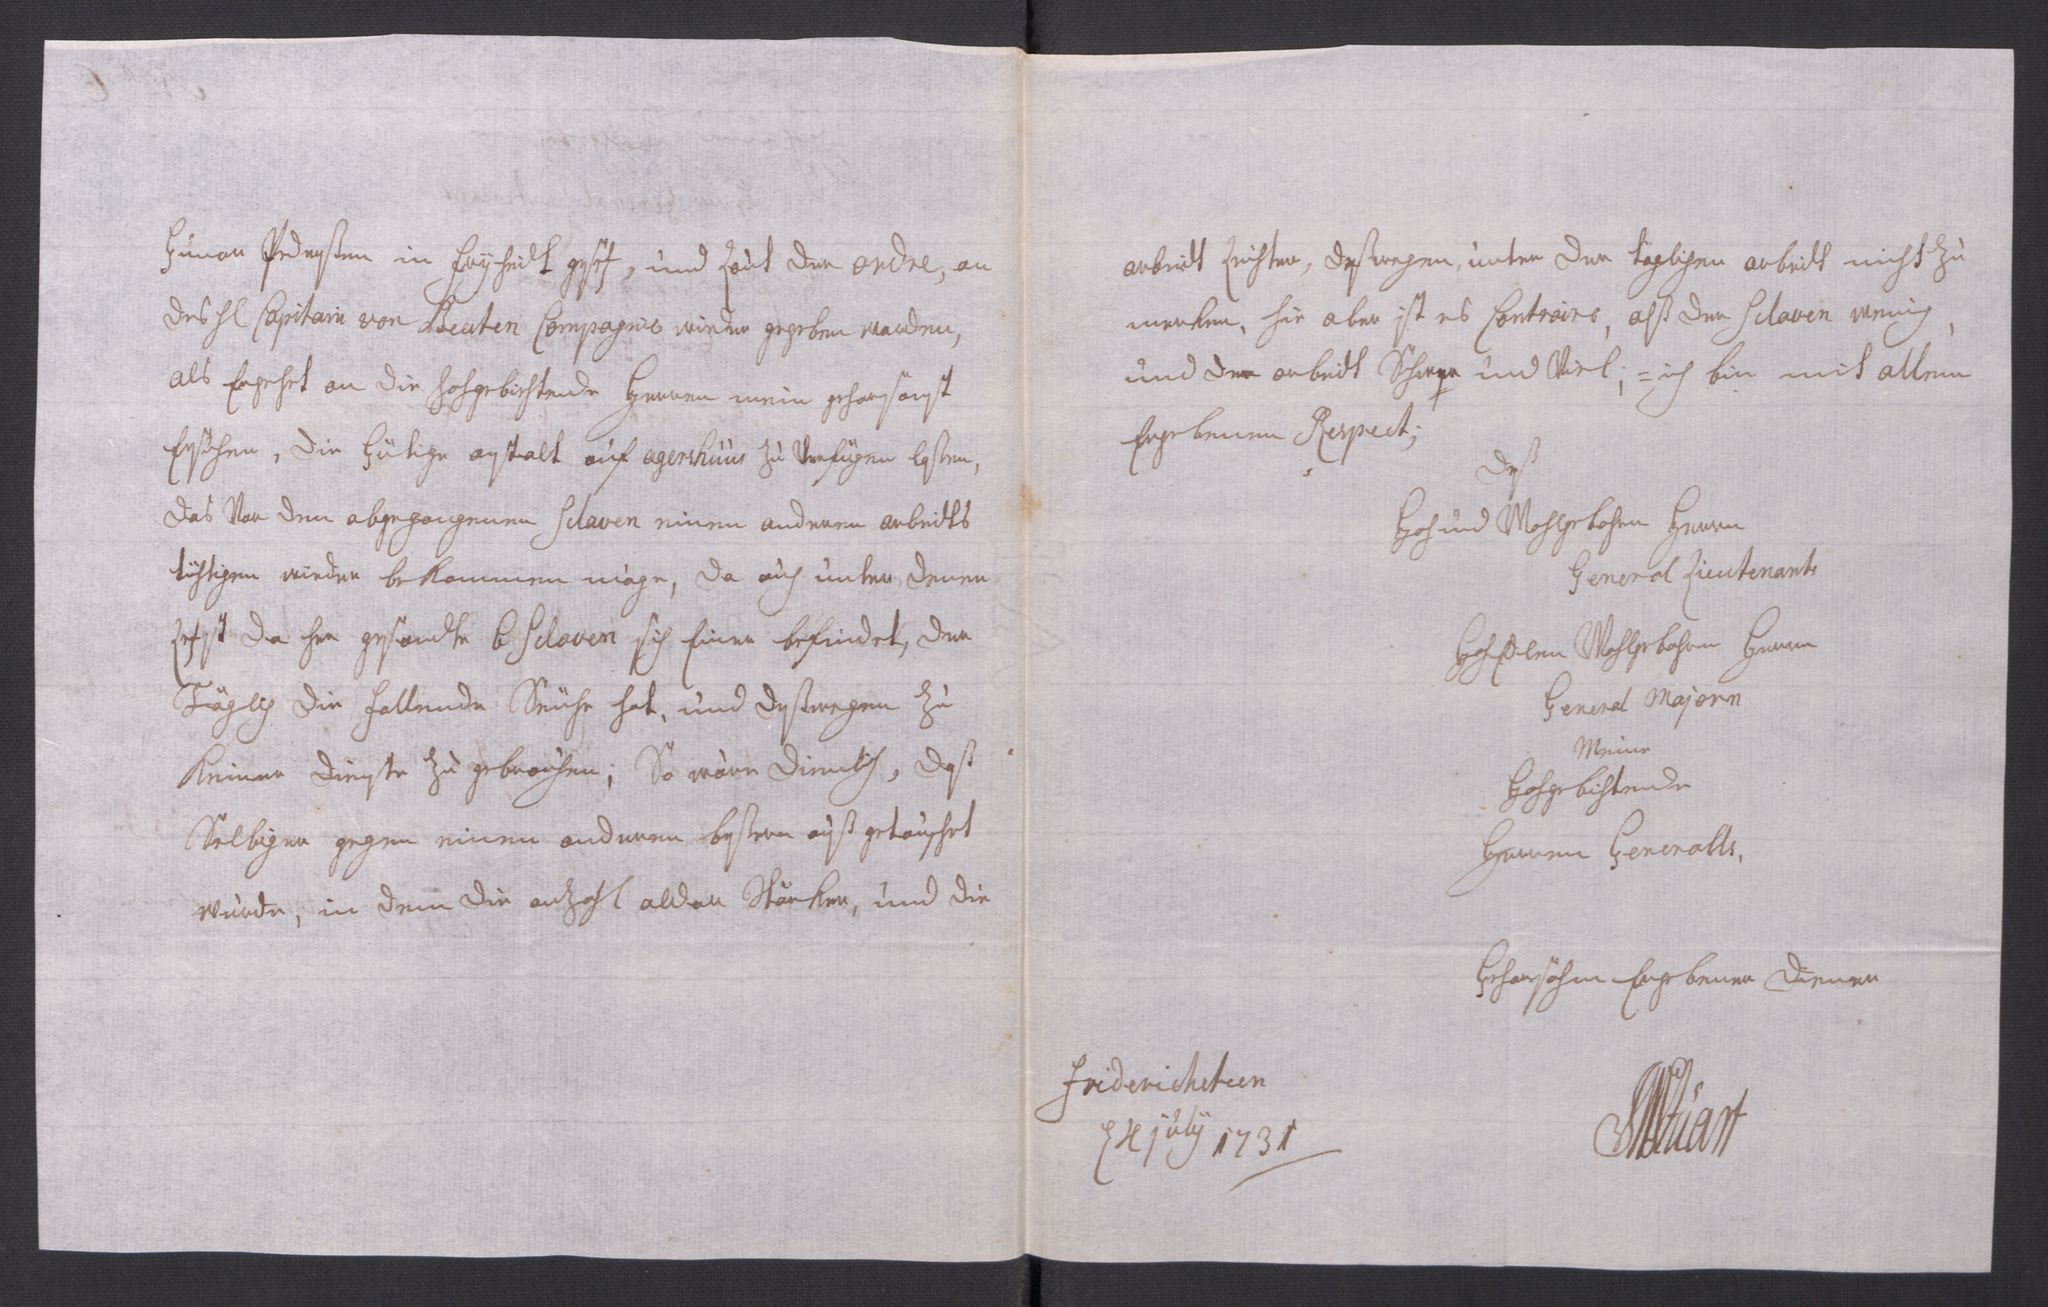 Gunar Pedersßen in freyheidt gesetzt, und Laut der ordre, an
des H Capitain von Leuten Compagnie wieder gegeben worden,
als Ergehet an die Hochgebiehtende Herren mein gehorsamst
Ersuchen, die Gütige anstalt auf agershuus zu Verfügen laßen,
das Vor den abgegangenen Sclaven einen anderen arbeidts
tüchtigen wieder bekommen möge, da auch unter denen
Letzt da her gesandte 6 Sclaven sich Einer befindet, der
Täglich die fallende Seuche hat, und deßwegen zu
keiner dienste zu gebrauchen; So wäre dienlich, daß
Selbiger gegen einen anderen beßern auß getauschet
würde, in dem die anzahl aldar Stärker, und die
arbeidt Leichter, deßwegen unter der täglichen arbeidt nicht zu
mercken, hie aber ist es Contraire, alß der Sclaven wenig,
und der arbeidt Schwer und Viel; = ich bin mit allem
Ergebenen Respect;
Deß
Hoch und Wohlgebohrn Herrn
General Lieutenants
Hoch Edlen Wohlgebohrn Herrn
General Majorn
Meine
Hochgebiehtende
Herren Generalls,
Gehorsahm Ergebener Diener
Fridericksteen
24 july 1731
Stuart